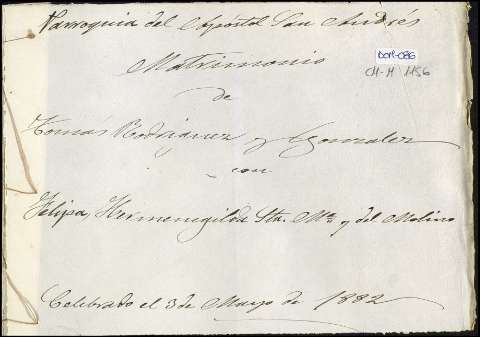 Parroquia del Apostol San Andrés
DOM-086
CH-H 1156
Matrimonio
de
Tomás Rodriguez y Gonzalez
con
Felipa, Hermenegilda Sta. Ma. y del Molino
Celebrado el 3 de Mayo de 1882